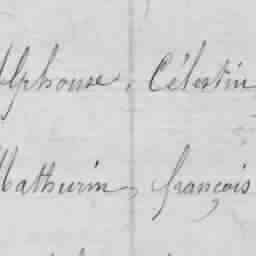 Alphonse, Célestin
Mathurin, françois